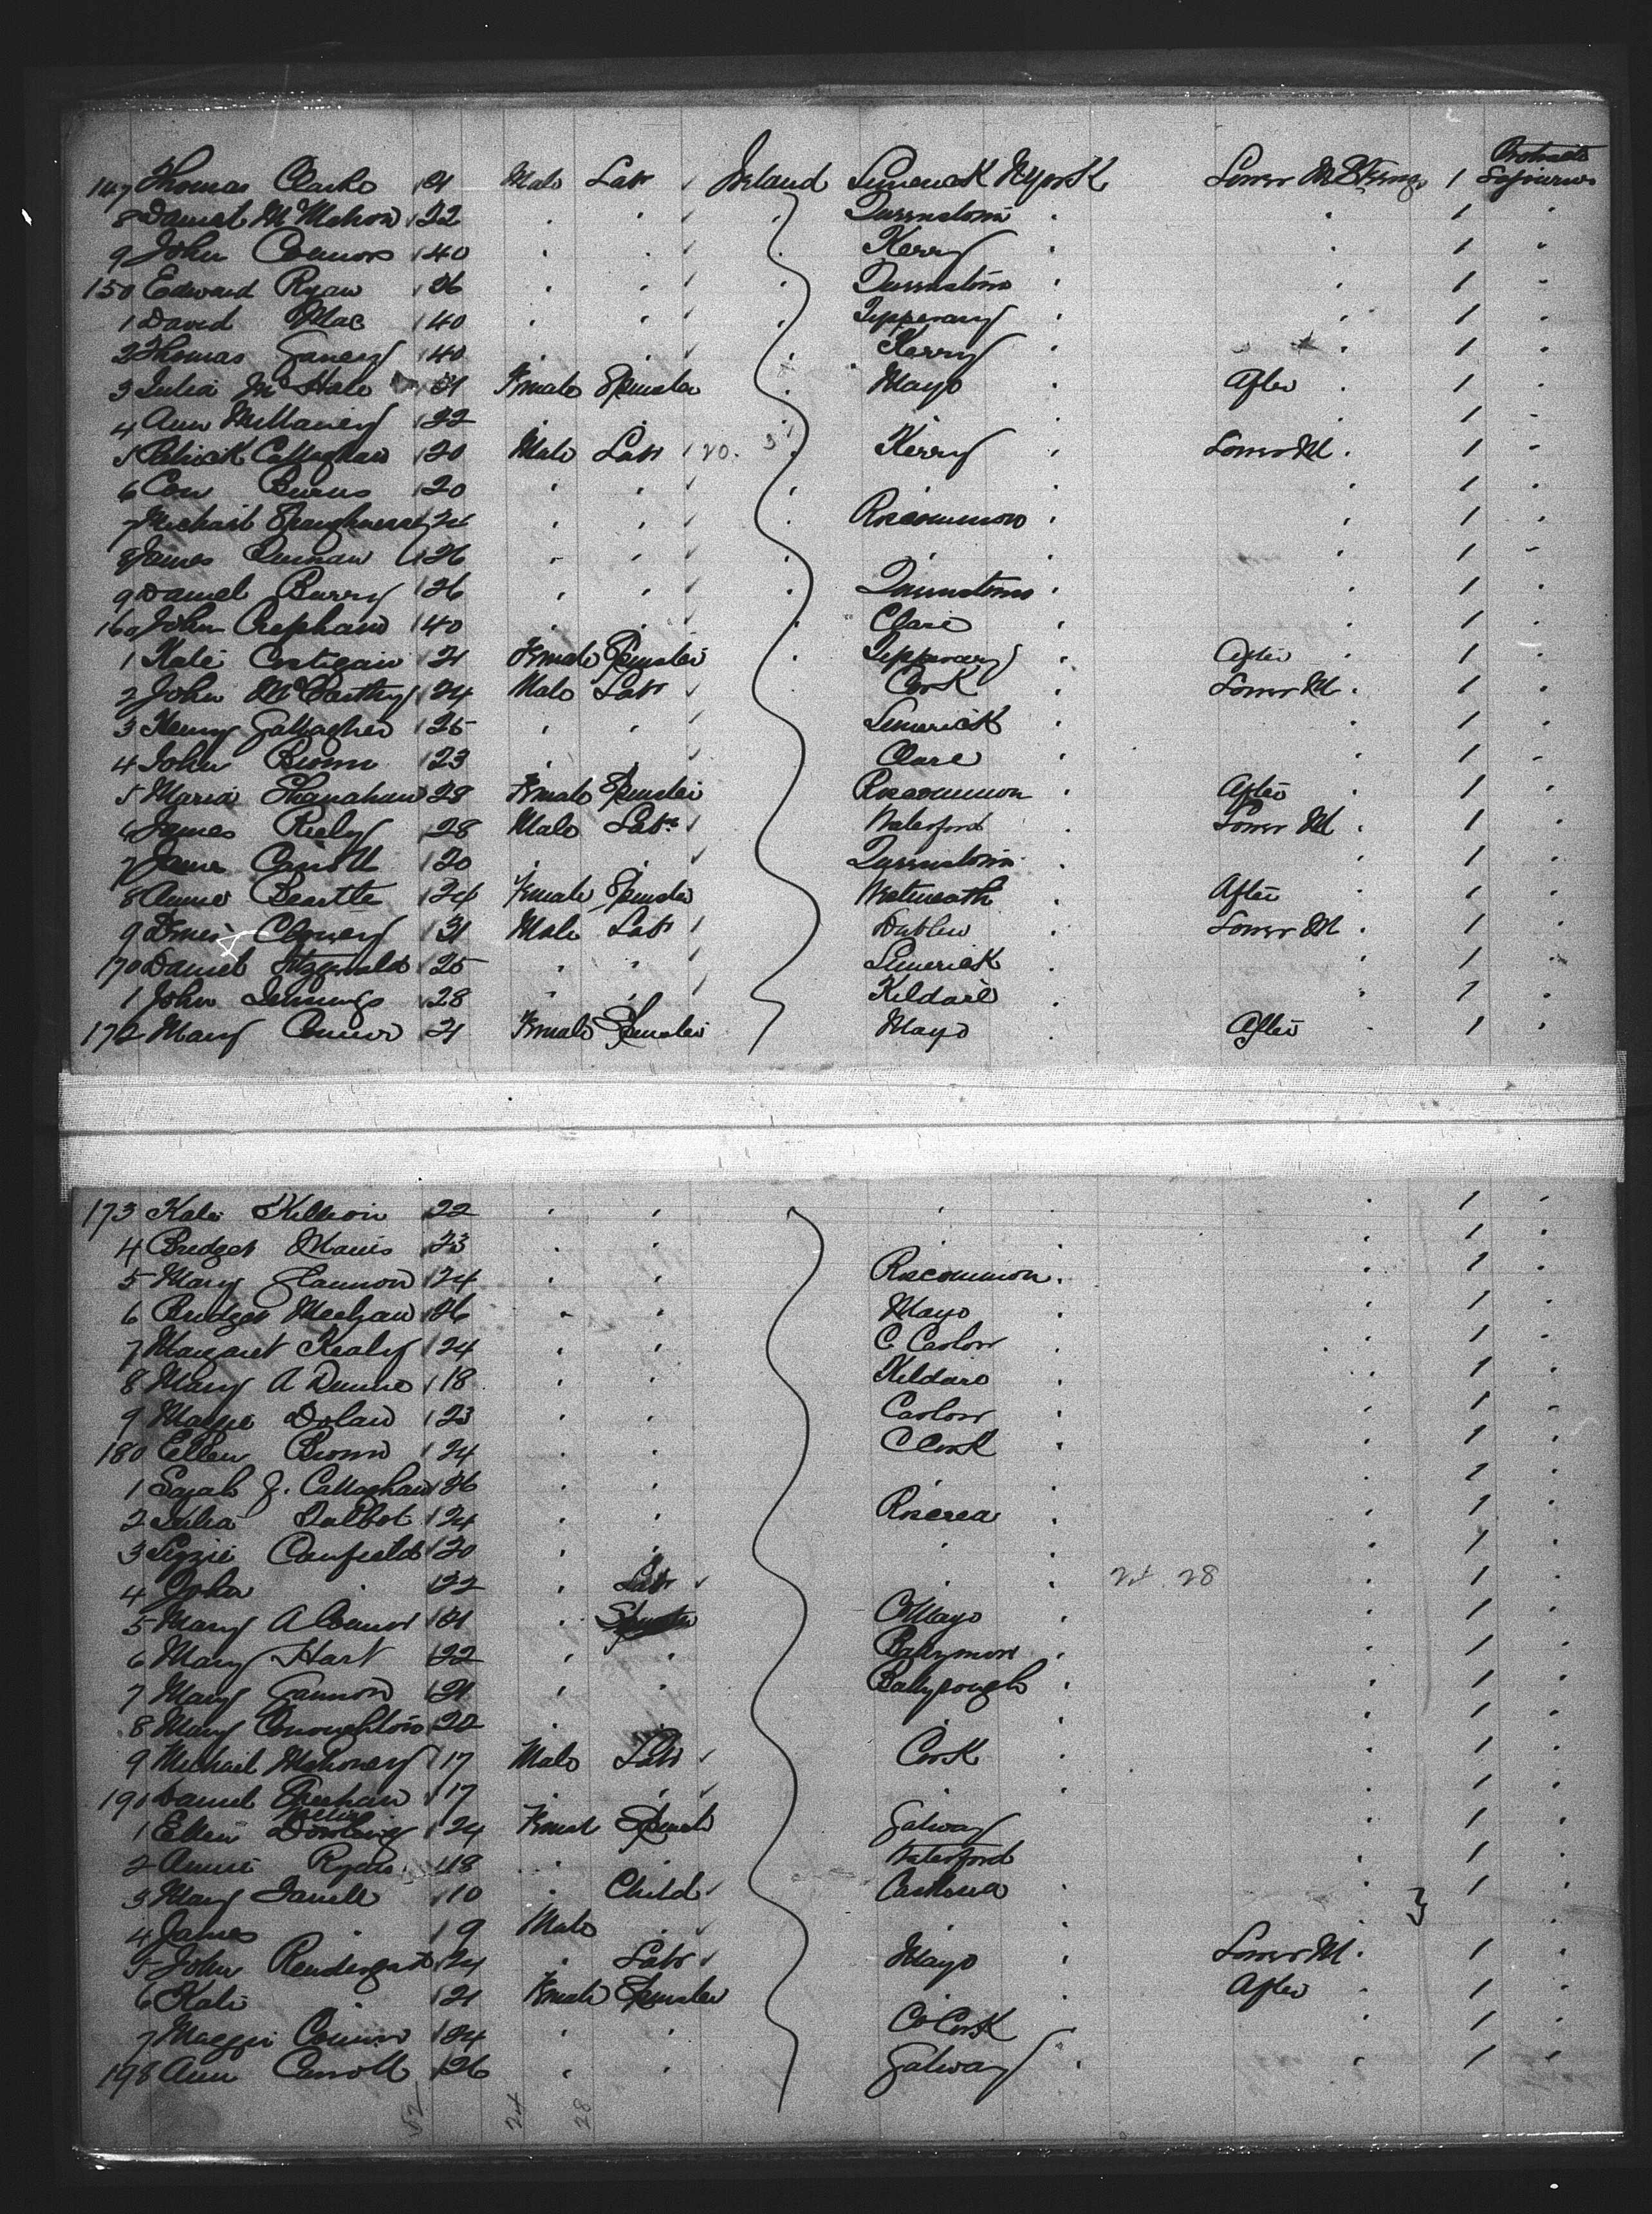 147 Thomas Clarke 21 Male Labr Ireland Limerick N York Lower M Steerage 1 Protracted Sojourn
8 Daniel McMahon 22 " " " Queenstown " " 1 "
9 John Connors 40 " " " Kerry " " 1 "
150 Edward Ryan 26 " " " Queenstown " " 1 "
1 David Mac 40 " " " Tipperary " " 1 "
2 Thomas Ganey 40 " " " Kerry " " 1 "
3 Julia McHale 21 Female Spinster " Mayo " After " 1 "
4 Ann Mullaney 22 " " " " " " 1 "
5 Patrick Callaghan 20 Male Labr 20. 31 " Kerry " Lower M " 1 "
6 Con Burns 20 " " " " " " 1 "
7 Michael Shaughnessy 24 " " " Roscommon " " 1 "
8 James 26 " " " " " " 1 "
9 Daniel Barry 26 " " " Queenstown " " 1 "
160 John 40 " " " Clare " " 1 "
1 Kate Costigan 21 Female Spinster " Tipperary " After " 1 "
2 John McCarthy 24 Male Labr " Cork " Lower M " 1 "
3 Henry Gallagher 25 " " Limerick " " 1 "
4 John Brown 23 " " Clare " " 1 "
5 Maria Shanahan 28 Female Spinster Roscommon " After " 1 "
6 James Reely 28 Male Labr Waterford " Lower M " 1 "
7 James Carroll 20 " " Queenstown " " 1 "
8 Annie Beartle 24 Female Spinster Westmeath " After " 1 "
9 Clowery 31 Male Labr Dublin " Lower M " 1 "
170 Daniel Fitzgerald 25 " " Limerick " " 1 "
1 John Jennings 28 " " Kildare " " 1 "
172 Mary Connor 21 Female Spinster Mayo " After " 1 "
173 Kate Killeoin 22 " " " " " 1 "
4 Bridget Manis 23 " " " " " 1 "
5 Mary Glannon 24 " " Roscommon " " 1 "
6 Bridget Meehan 26 " " Mayo " " 1 "
7 Margaret Kealy 24 " " C. Carlow " " 1 "
8 Mary A Dunne 18 " " Kildare " " 1 "
9 Maggie Dolan 23 " " Carlow " " 1 "
180 Ellen Brown 24 " " C Cork " " 1 "
1 Sarah J. Callaghan 26 " " " " " 1 "
2 Julia Talbot 24 " " Roscrea " " 1 "
3 Lizzie Canfield 20 " " " " " 1 "
4 John " 22 " Labr " " 24 28 " 1 "
5 Mary A Connor 21 " Spinster C Mayo " " 1 "
6 Mary Hart 22 " " Ballymore " " 1 "
7 Mary Gannon 21 " " Ballyrough " " 1 "
8 Mary Conoughton 22 " " " " " 1 "
9 Michael Mahoney 17 Male Labr Cork " " 1 "
190 Daniel Sheehan 17 " " " " " 1 "
1 Ellen Dowling 24 Femal Spinst Galway " 1 "
2 Annie Ryan 18 " " Waterford " 1 "
3 Mary 10 " Child " " 1 "
4 James " 9 Male " " " " "
5 John Prendergast 24 " Labr Mayo " Lower M " 1 "
6 Kate " 21 Female Spinster " " After " 1 "
7 Maggie Connor 24 " " Co Cork " " 1 "
198 Ann Carroll 26 " " Galway " " 1 "
52 24 28